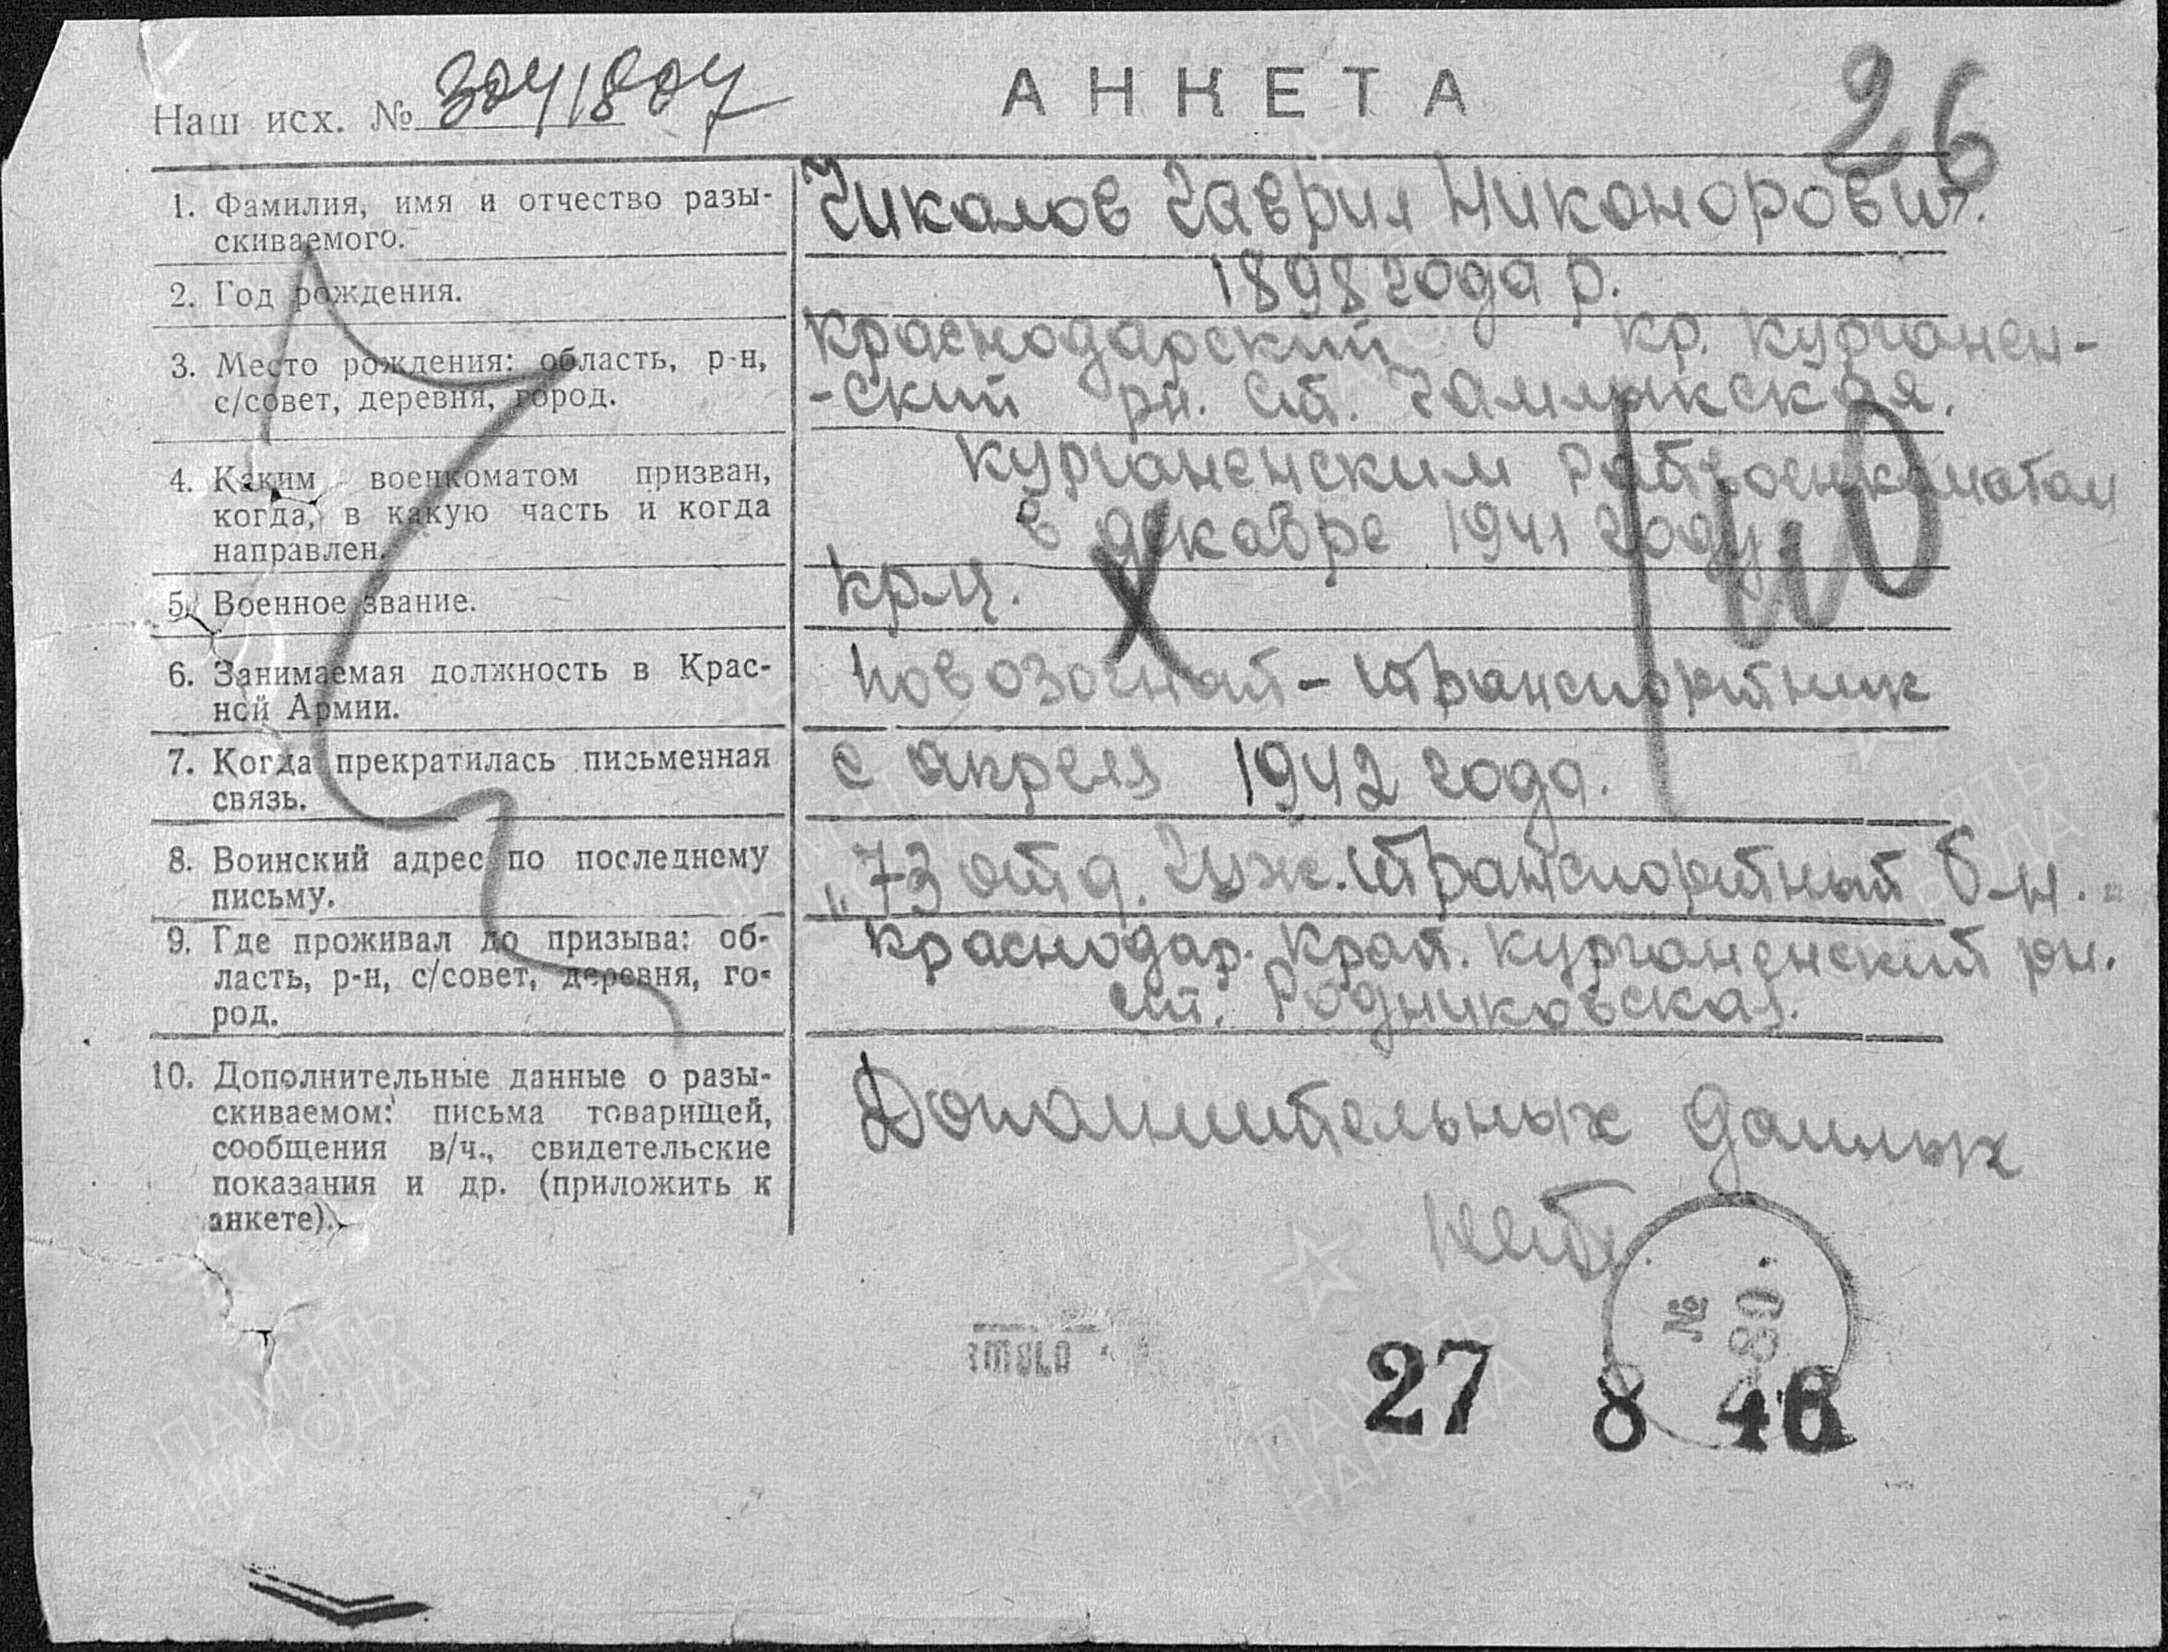 Наш исх. № 3041804
АНКЕТА
26
1. Фамилия, имя и отчество разы-
скиваемого.
Чикалов Гаврил Никонорович.
2. Год рождения.
1898 года р.
3. Место рождения: область, р-н,
с/совет, деревня, город.
Краснодарский кр. Курганен-
-ский рн. ст. Чамлыкская.
4. Каким военкоматом призван,
когда, в какую часть и когда
направлен.
Курганенским Райвоенкоматом
в декабре 1941 году.
5. Военное звание.
Кр-ц.
6. Занимаемая должность в Крас-
ной Армии.
Повозочный - транспортник
7. Когда прекратилась письменная
связь.
с апреля 1942 года.
8. Воинский адрес по последнему
письму.
„73 отд. Гуж. транспортный б-н."
9. Где проживал до призыва: об-
ласть, р-н, с/совет, деревня, го-
род.
Краснодар. край. Курганенский рн.
ст. Родниковская.
10. Дополнительные данные о разы-
скиваемом: письма товарищей,
сообщения в/ч., свидетельские
показания и др. (приложить к
анкете).
Дополнительных данных
нет.
№
27 8 46
ПАМЯТЬ
НАРОДА